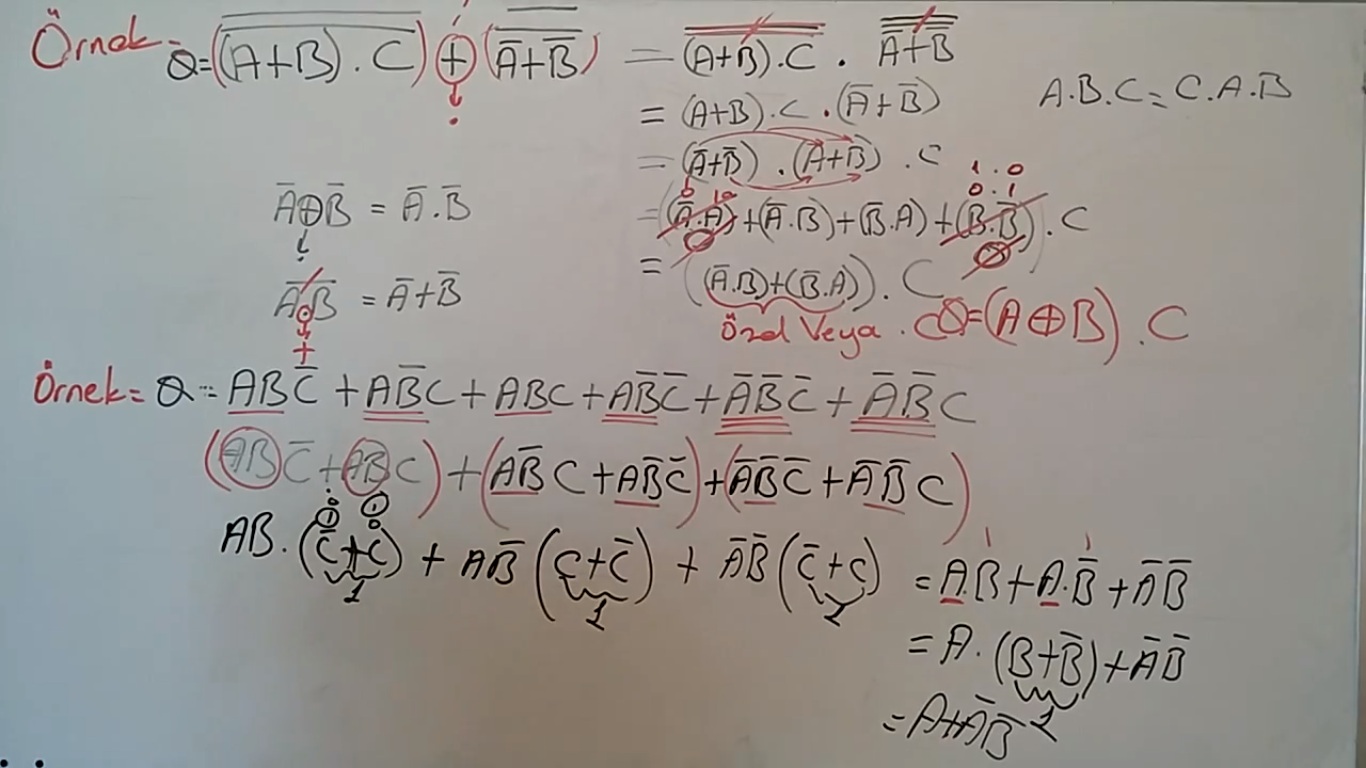 Örnek = Q = \overline{\overline{(A+B).C} + (\overline{\overline{A}+\overline{B}})} = \overline{\overline{(A+B).C}} . \overline{\overline{\overline{A}+\overline{B}}}
= (A+B).C.(A̅+B̅)
A.B.C = C.A.B
= (A̅+B̅).(A+B).C
A̅⊕B̅ = A̅.B̅
1.0
0.1
= (A̅.A)+(A̅.B)+(B̅.A)+(B.B̅).C
= ((A̅.B)+(B̅.A)).C
\overline{A.B} = A̅+B̅
+
Özel Veya . C Q=(A⊕B).C
Örnek = Q = ABC̅ + AB̅C + ABC + AB̅C̅ + A̅B̅C̅ + A̅B̅C
(ABC̅ + ABC) + (AB̅C + AB̅C̅) + (A̅B̅C̅ + A̅B̅C)
AB.(C̅+C) + AB̅(C+C̅) + A̅B̅(C̅+C) = A.B+A.B̅+A̅B̅
1 1 1
= A.(B+B̅)+A̅B̅
1
= A+A̅B̅